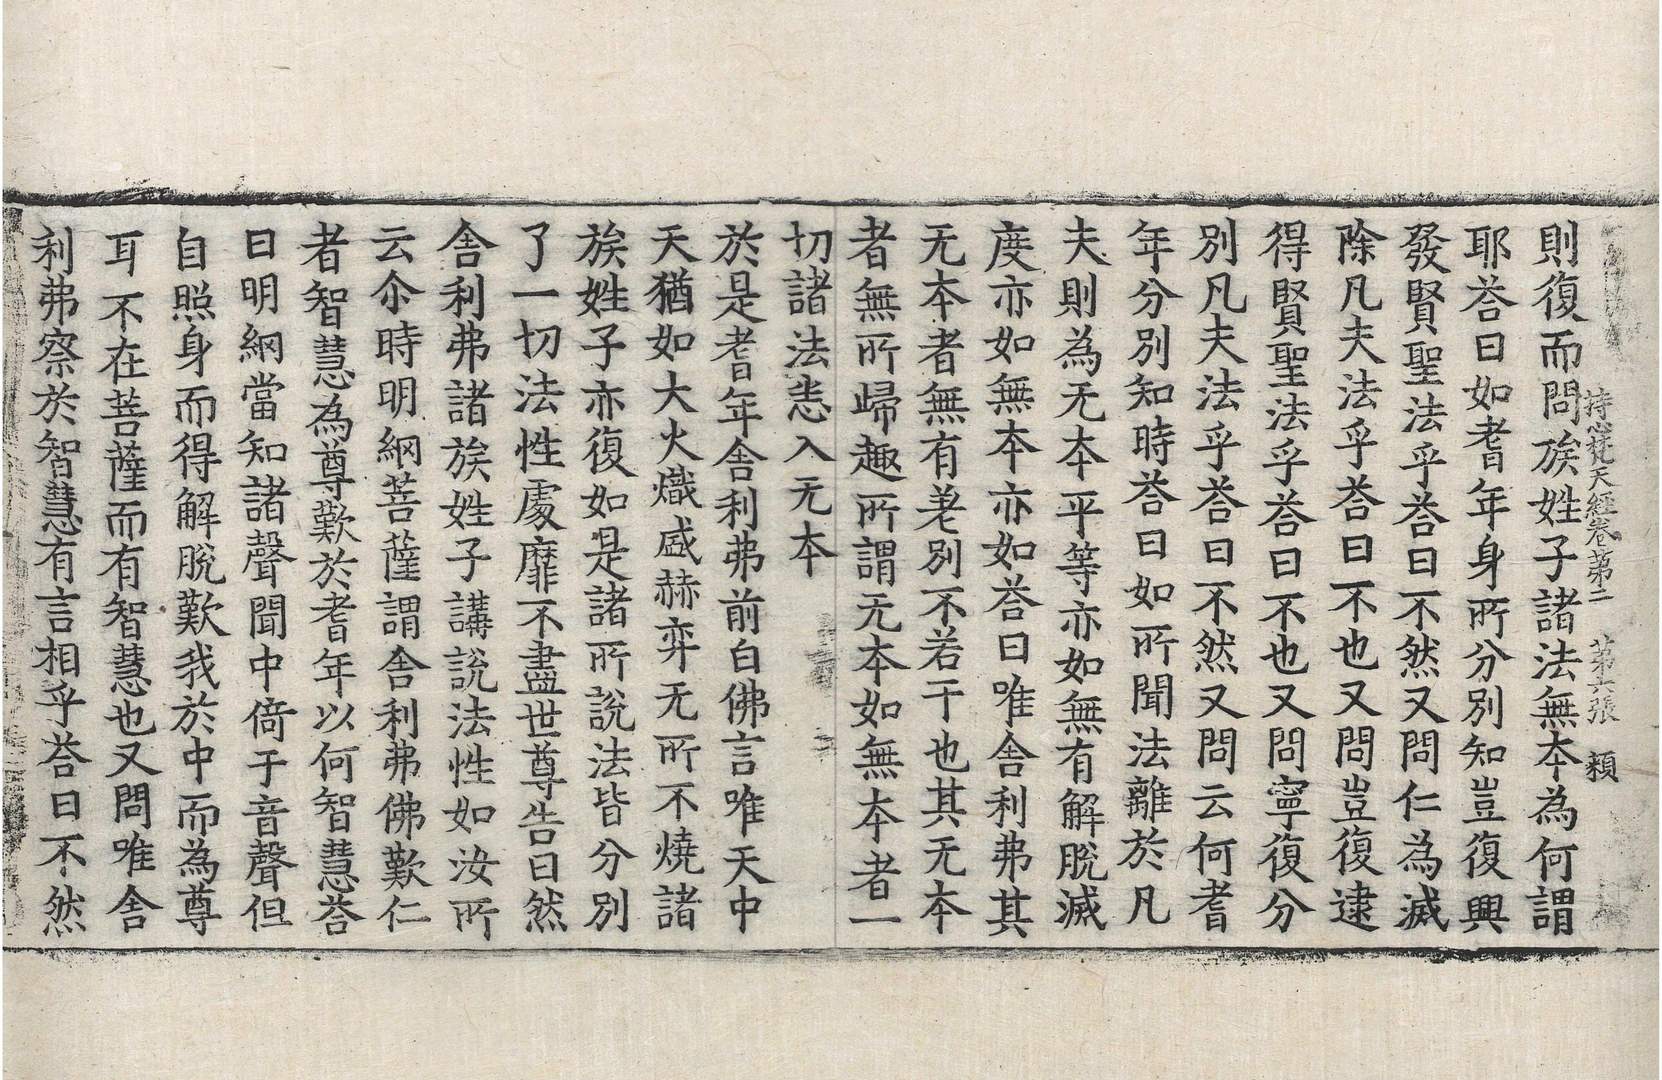 持心梵天經卷第二　第六張　頼
則復而問族姓子諸法無本為何謂
耶荅曰如耆年身所分別知豈復興
發賢聖法乎荅曰不然又問仁為滅
除凡夫法乎荅曰不也又問豈復逮
得賢聖法乎荅曰不也又問寧復分
別凡夫法乎荅曰不然又問云何耆
年分別知時荅曰如所聞法離於凡
夫則為无本平等亦如無有解脫滅
度亦如無本亦如荅曰唯舍利弗其
无本者無有差別不若干也其无本
者無所歸趣所謂无本如無本者一
切諸法悉入无本
於是耆年舍利弗前白佛言唯天中
天猶如大火熾盛赫弈无所不燒諸
族姓子亦復如是諸所說法皆分別
了一切法性處靡不盡世尊告曰然
舍利弗諸族姓子講說法性如汝所
云尒時明網菩薩謂舍利弗佛歎仁
者智慧為尊歎於耆年以何智慧荅
曰明網當知諸聲聞中倚于音聲但
自照身而得解脫歎我於中而為尊
耳不在菩薩而有智慧也又問唯舍
利弗察於智慧有言相乎荅曰不然